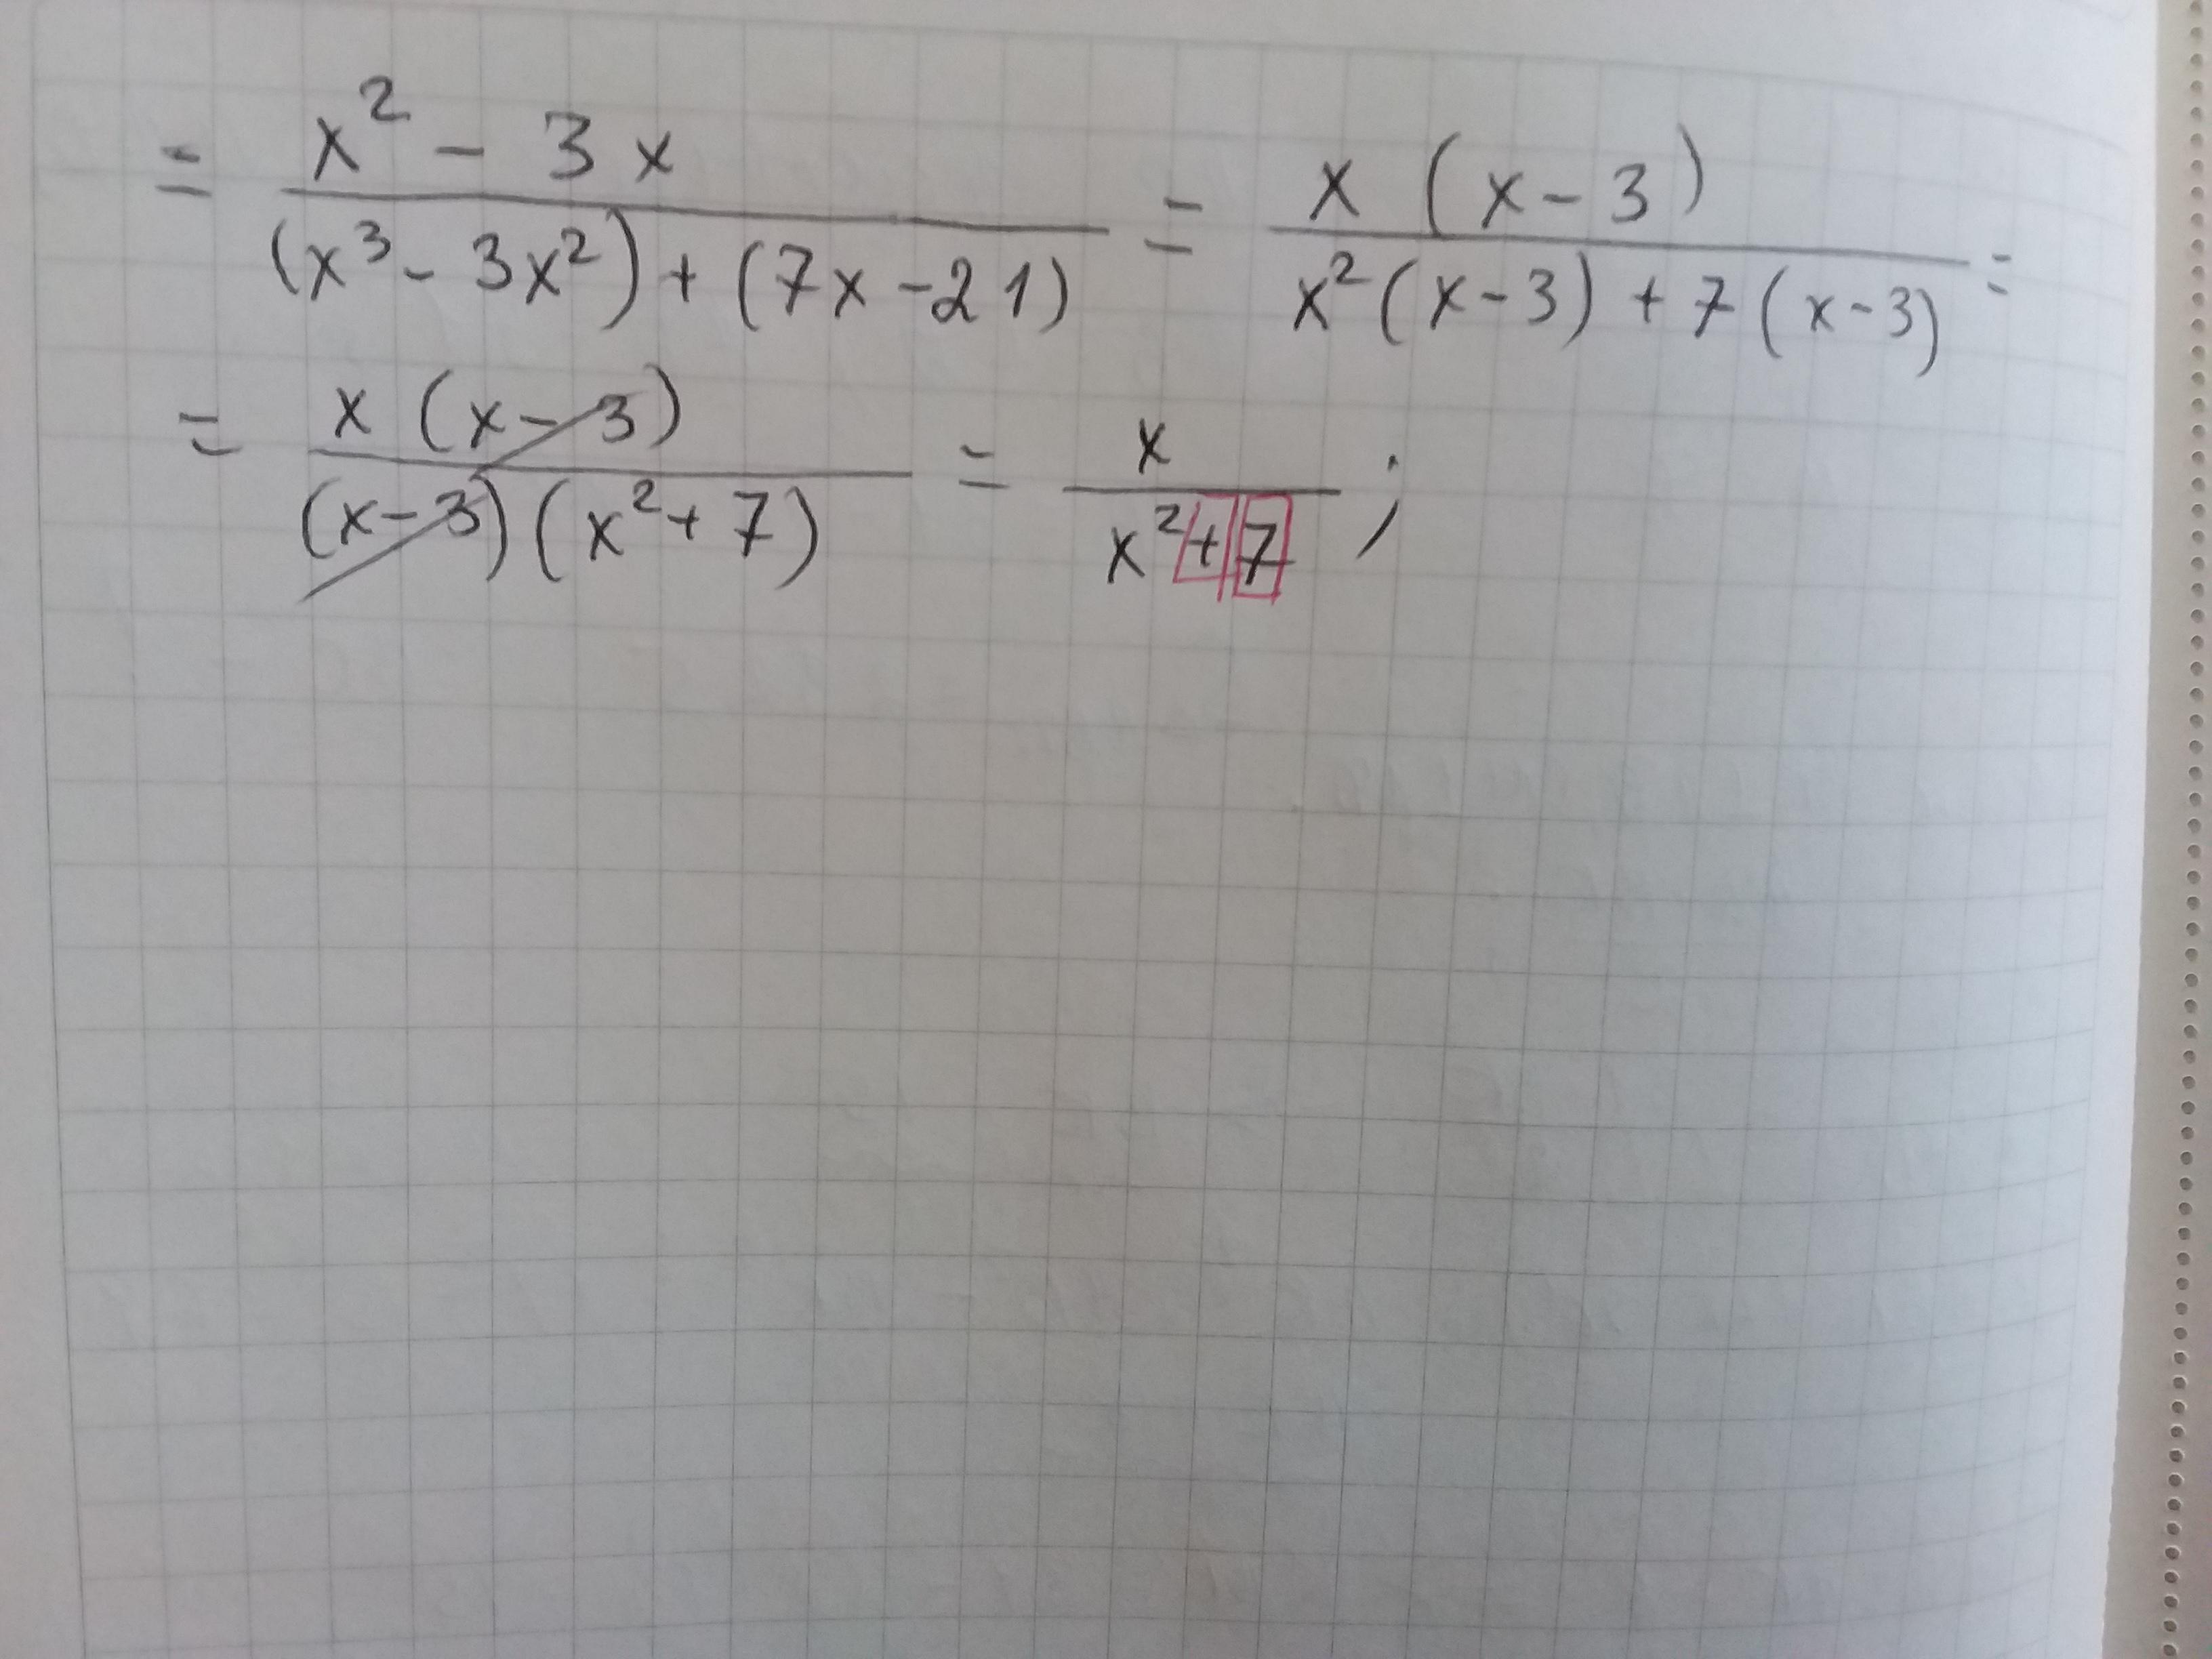 = (x² - 3x)/((x³ - 3x²) + (7x - 21)) = (x(x - 3))/(x²(x - 3) + 7(x - 3)) =
= (x(x - 3))/((x - 3)(x² + 7)) = x/(x² + 7);